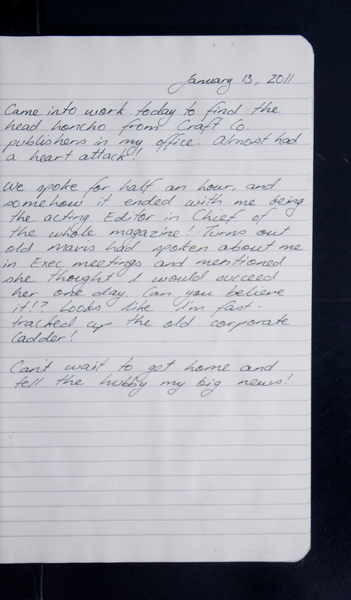 January 13, 2011
Came into work today to find the
head honcho from Craft Co.
publishers in my office. Almost had
a heart attack!
We spoke for half an hour, and
somehow it ended with me being
the acting Editor in Chief of
the whole magazine! Turns out
old Mavis had spoken about me
in Exec meetings and mentioned
she thought I would succeed
her one day. Can you believe
it!? Looks like I'm fast-
tracked up the old corporate
ladder!
Can't wait to get home and
tell the hubby my big news!